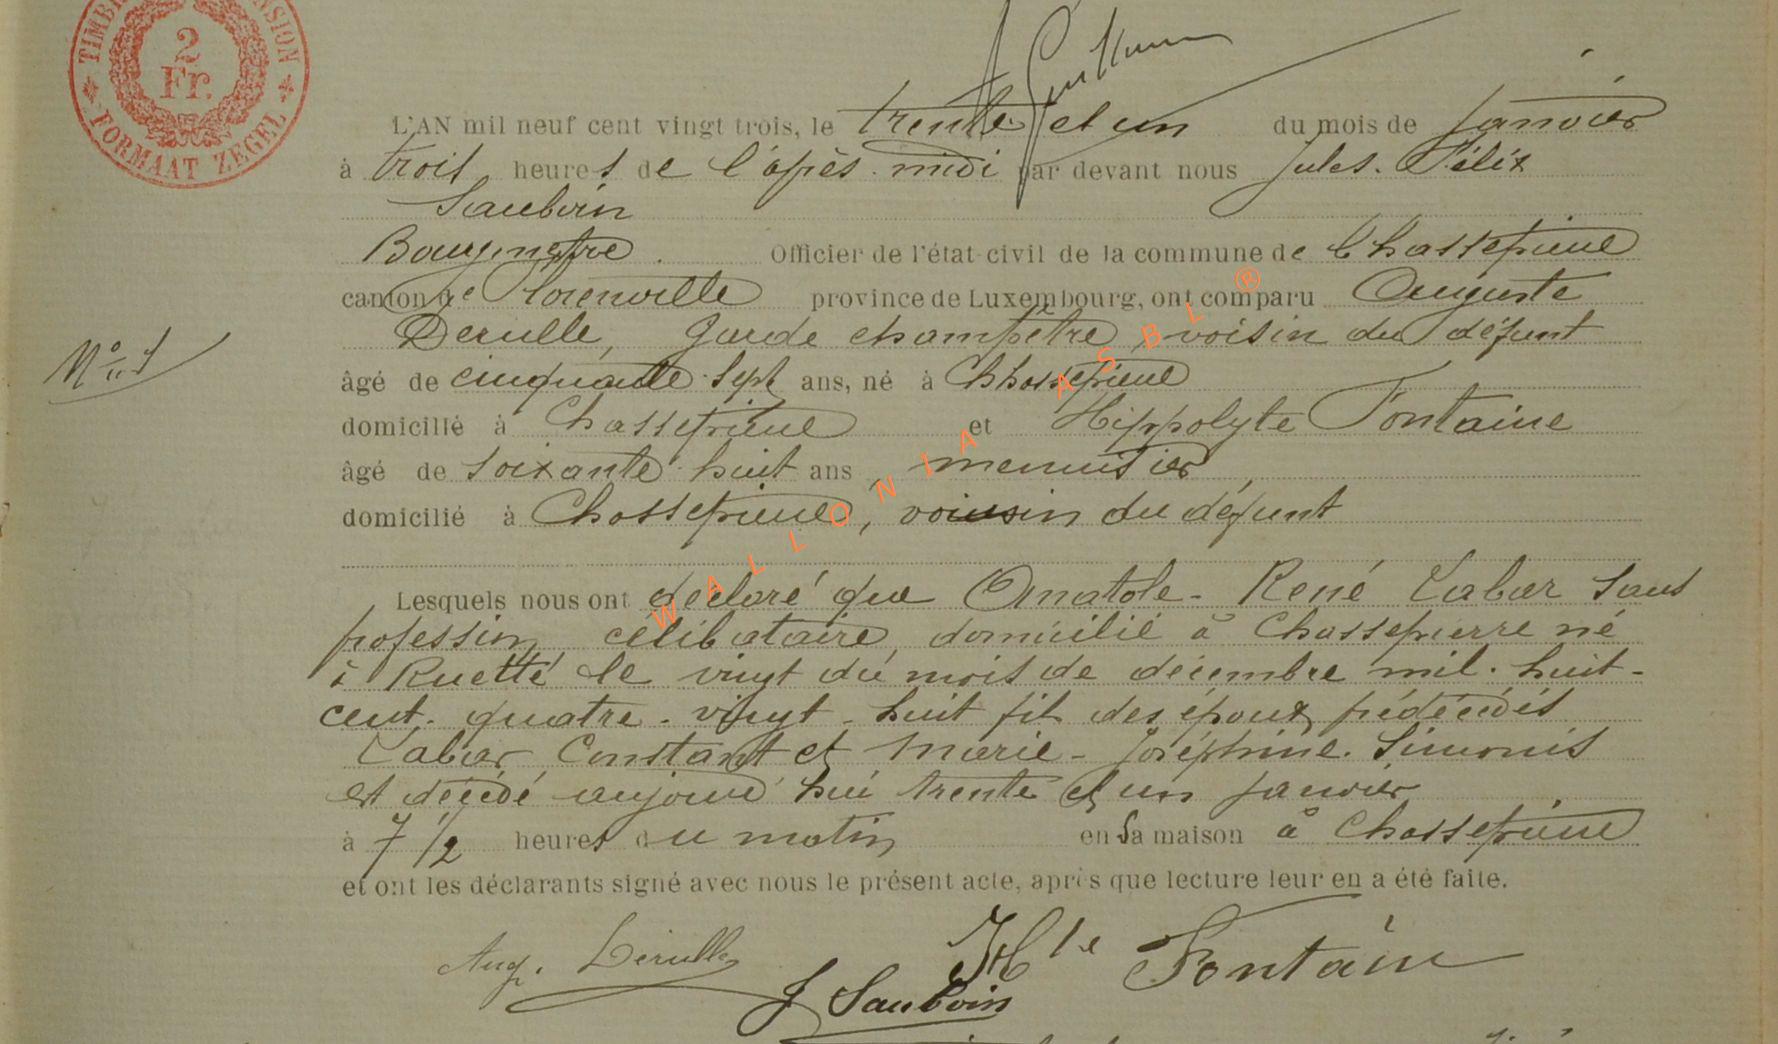 TIMBRE DIMENSION
2
Fr.
FORMAAT ZEGEL
L'AN mil neuf cent vingt trois, le trente et un du mois de Janvier
à trois heures de l'après-midi par devant nous Jules-Félix
Sauboin
Bourgmestre. Officier de l'état-civil de la commune de Chassepierre
canton de Florenville province de Luxembourg, ont comparu Auguste
Derulle, Garde champêtre, voisin du défunt
N° 1
âgé de cinquante-sept ans, né à Chassepierre
domicilié à Chassepierre et Hippolyte Fontaine
âgé de soixante-huit ans, menuisier,
domicilié à Chassepierre, voisin du défunt
Lesquels nous ont déclaré que Anatole-René Labar sans
profession, célibataire, domicilié à Chassepierre né
à Ruette le vingt du mois de décembre mil-huit-
cent-quatre-vingt-huit fils des époux prédécédés
Labar Constant et Marie-Joséphine Simonis
est décédé aujourd'hui trente et un janvier
à 7 1/2 heures du matin en sa maison à Chassepierre
et ont les déclarants signé avec nous le présent acte, après que lecture leur en a été faite.
Aug. Derulle Hte Fontain
J Sauboin
WALLONIA ASBL ®